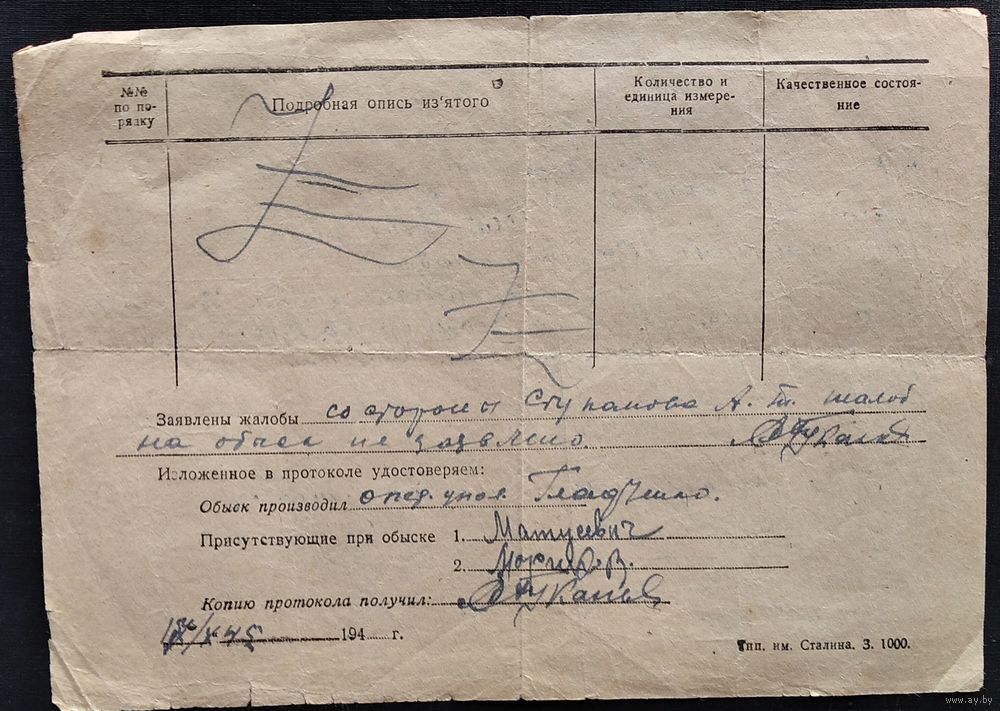 №№ по по- рядку
Подробная опись из'ятого
Количество и единица измере- ния
Качественное состоя- ние
Заявлены жалобы со стороны Ступакова А. Т. жалоб
на обыск не заявлено
Изложенное в протоколе удостоверяем:
Обыск производил опер. упол. Гладченко.
Присутствующие при обыске 1. Матусевич
2.
Копию протокола получил:
194 г.
Тип. им. Сталина. З. 1000.
www.ay.by